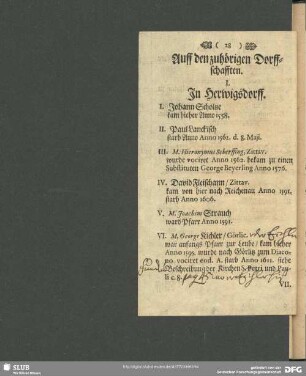 ( 18 )
Auff den zuhörigen Dorff-
schafften.
I.
In Herwigsdorff.
I. Johann Schölne
kam hieher Anno 1558.
II. Paul Lanckisch
starb Anno Anno 1562. d. 8. Maji.
III. M. Hieronymus Scherffing, Zittav.
wurde vociret Anno 1562. bekam zu einen
Substituten George Beyerling Anno 1576.
IV. David Fleischann / Zittav.
kam von hier nach Reichenau Anno 1591.
starb Anno 1606.
V. M. Joachim Strauch
ward Pfarr Anno 1591.
VI. M. George Richler / Görlic.
war anfangs Pfarr zur Leube / kam hieher
Anno 1595. wurde nach Görlitz zum Diaco-
no vociret eod. A. starb Anno 1611. siehe
Beschreibung der Kirchen S. Petri und Pau-
li c. 8.
VII.
SLUB
Wir führen Wissen.
gefördert von der
DFG